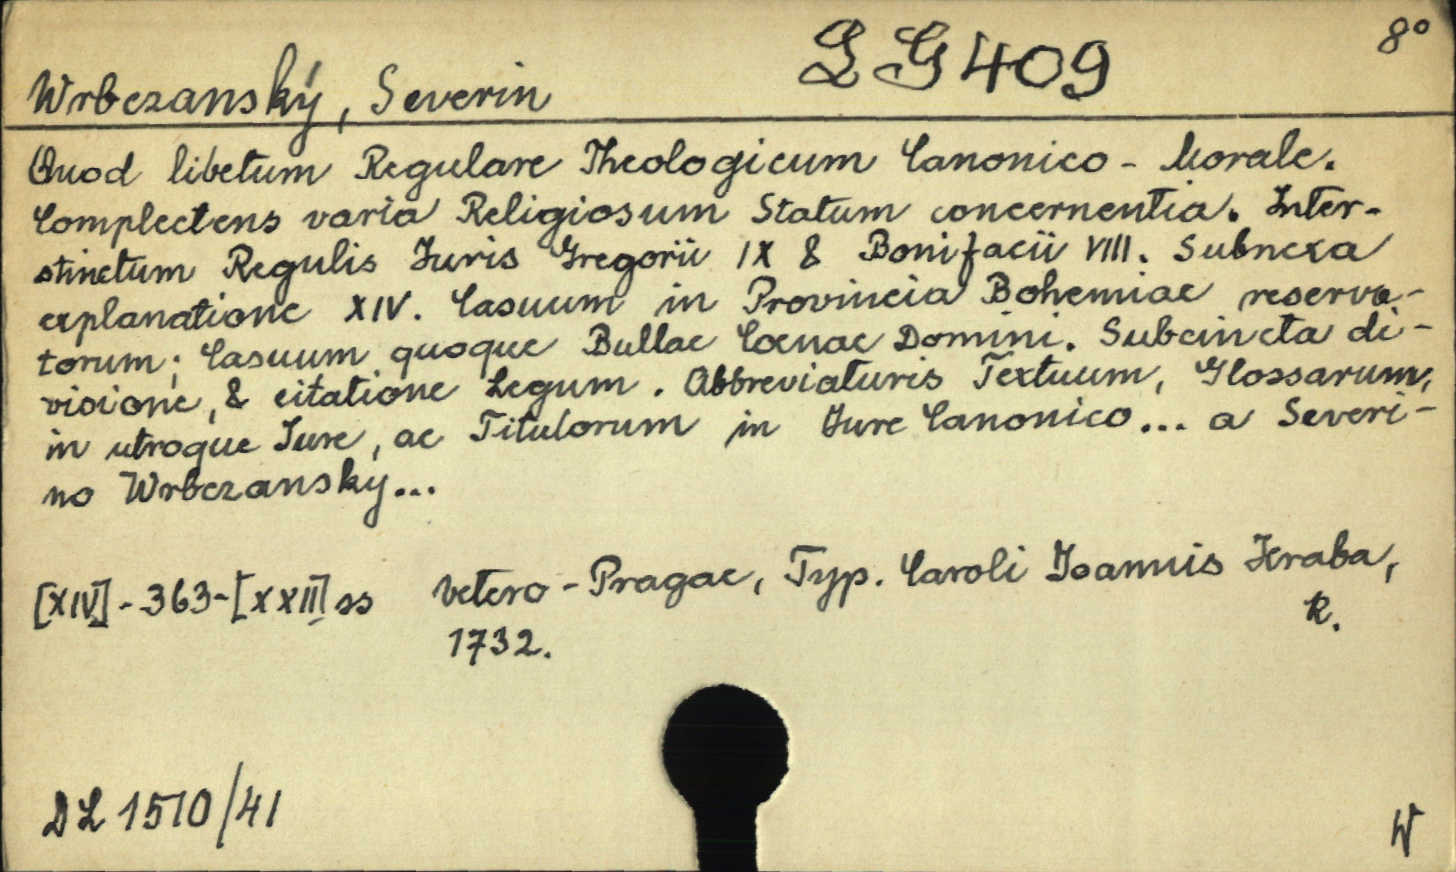 8°
LG 409
Wrbczanský, Severin
Quod libetum Regulare Theologicum Canonico - Morale.
Complectens varia Religiosum Statum concernentia. Inter-
stinctum Regulis Juris Gregorii IX & Bonifacii VIII. Subnexa
explanatione XIV. Casuum in Provincia Bohemiae reserva-
torum; Casuum quoque Bullae Coenae Domini. Subcincta di-
visione, & citatione Legum. Abbreviaturis Textuum, Glossarum,
in utroque Jure, ac Titulorum in Jure Canonico... a Severi-
no Wrbczansky...
[XIV]-363-[XXII] ss Vetero-Pragae, Typ. Caroli Joannis Hraba,
1732. R.
DL 1510/41
W